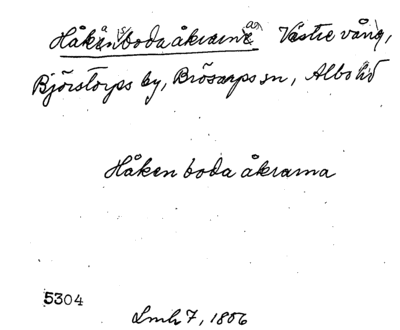 Håkånsboda åkrarna Västre vång,
Björstorps by, Brösarps sn, Albo hd
Håkenboda åkrarna
5304
Lmh 7, 1806